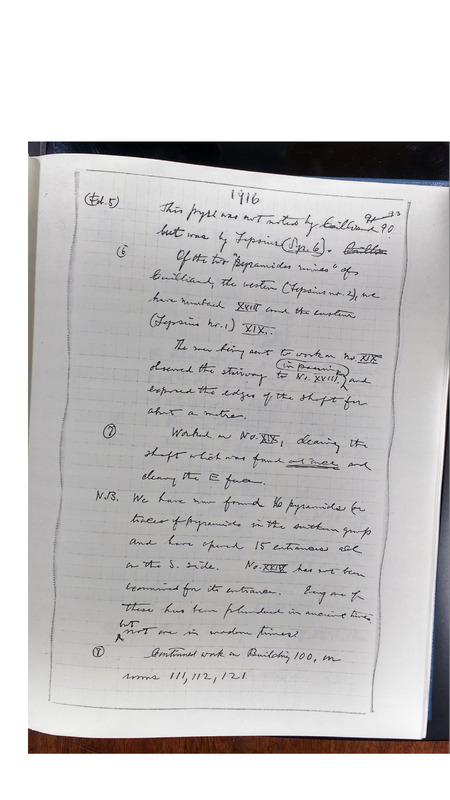 1916
(Feb. 5) This pyr. was not noted by Cailliaud 90
but was by Lepsius (Syr. 6).
(6) Of the two "pyramides ruinées" of
Cailliaud, the western (Lepsius no. 2), we
have numbered XVIII and the eastern
(Lepsius no. 1) XIX.
The men being sent to work on no. XIX
(in passing)
cleared the stairway to No. XVIII, and
exposed the edges of the shaft for
about a metre.
(7) Worked on No. XIX, clearing the
shaft which was found at once and
clearing the E face.
N.B. We have now found 16 pyramids (or
traces of pyramids in the southern group
and have opened 15 entrances all
on the S. side. No. has not been
examined for its entrance. Every one of
these has been plundered in ancient times,
but
not one in modern times?
(8) Continued work on Building 100, in
rooms 111, 112, 121